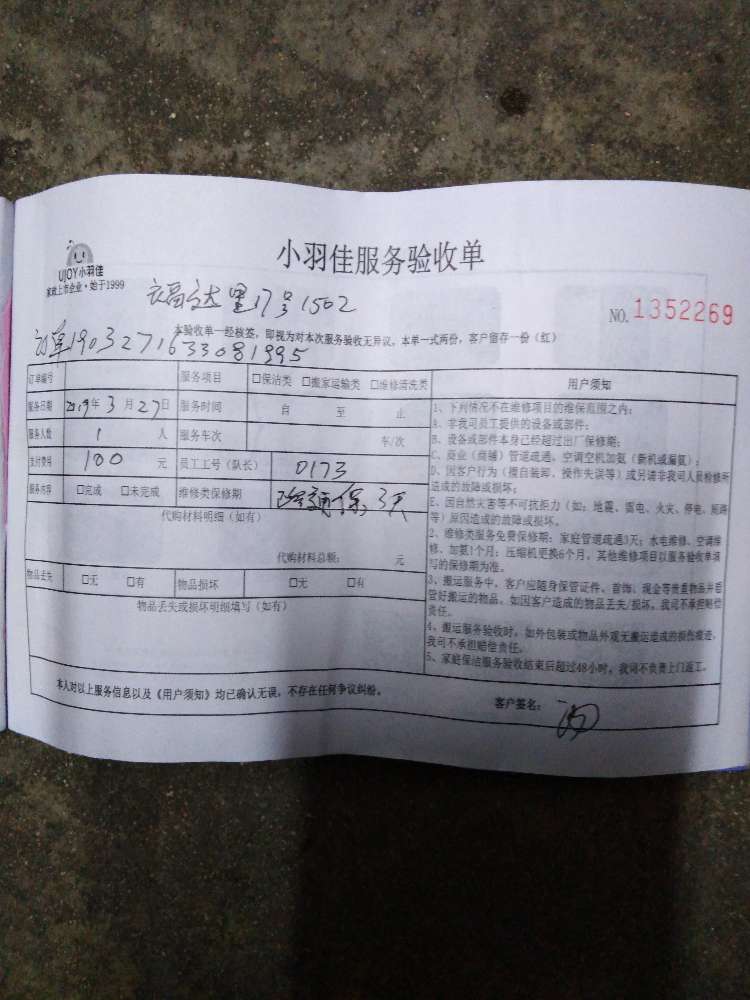 UJOY小羽佳
家政上市企业·始于1999
小羽佳服务验收单
NO. 1352269
17号1502
本验收单一经核签，即视为对本次服务验收无异议，本单一式两份，客户留存一份（红）
订单1903271633081995
订单编号 服务项目 □保洁类 □搬家运输类 □维修清洗类
服务日期 2019年3月27日 服务时间 自 至 止
服务人数 1 人 服务车次 车/次
支付费用 100 元 员工工号（队长） 0173
服务内容 □完成 □未完成 维修类保修期 疏通保3天
代购材料明细（如有）
代购材料总额： 元
物品丢失 □无 □有 物品损坏 □无 □有
物品丢失或损坏明细填写（如有）
用户须知
1、下列情况不在维修项目的维保范围之内：
A、非我司员工提供的设备或部件；
B、设备或部件本身已经超过出厂保修期；
C、商业（商铺）管道疏通、空调空机加氨（新机或漏氨）；
D、因客户行为（擅自装卸、操作失误等）或另请非我司人员检修所
造成的故障或损坏；
E、因自然灾害等不可抗拒力（如：地震、雷电、火灾、停电、短路
等）原因造成的故障或损坏。
2、维修类服务免费保修期：家庭管道疏通3天；水电维修、空调维
修、加氨1个月；压缩机更换6个月，其他维修项目以服务验收单填
写的保修期为准。
3、搬运服务中，客户应随身保管证件、首饰、现金等贵重物品并看
管好搬运的物品，如因客户造成的物品丢失/损坏，我司不承担赔偿
责任。
4、搬运服务验收时，如外包装或物品外观无搬运造成的损伤痕迹，
我司不承担赔偿责任。
5、家庭保洁服务验收结束后超过48小时，我司不负责上门返工。
本人对以上服务信息以及《用户须知》均已确认无误，不存在任何争议纠纷。
客户签名：